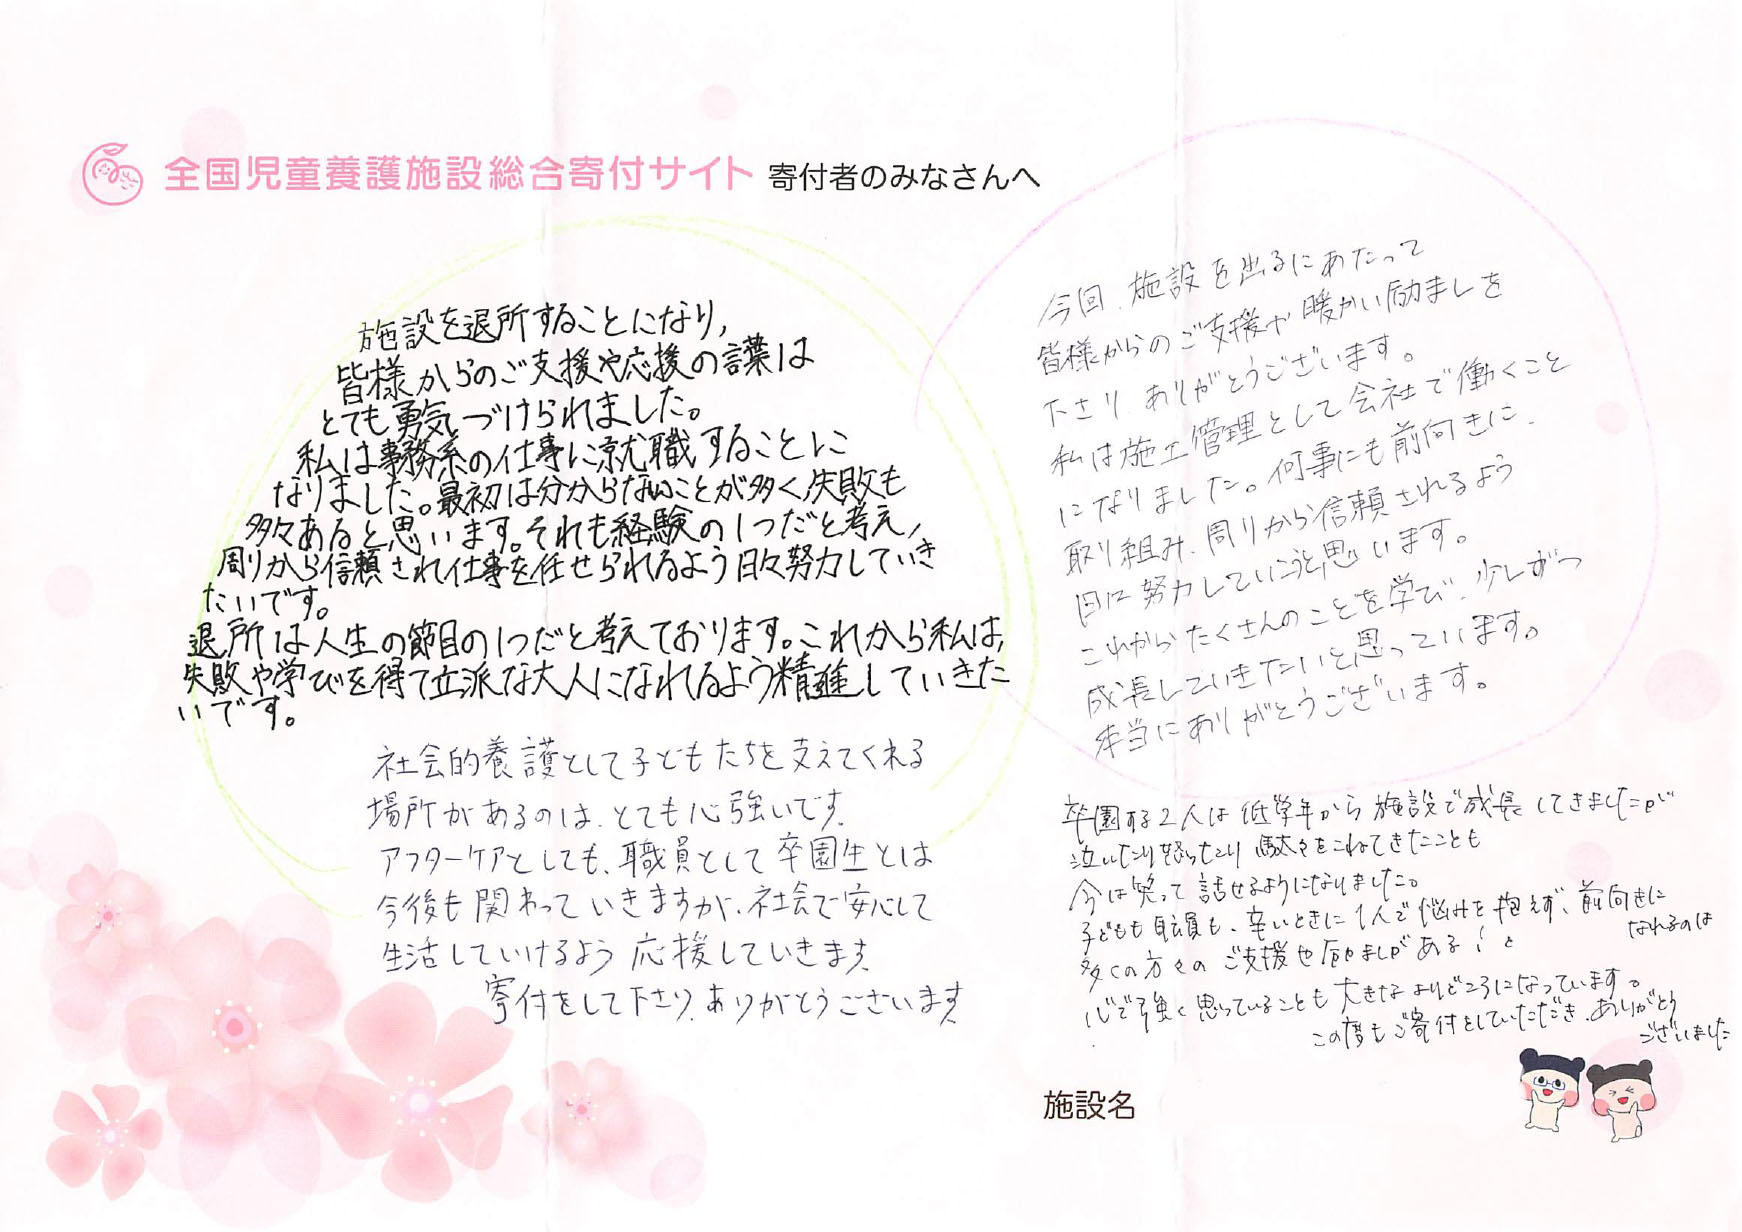 全国児童養護施設総合寄付サイト 寄付者のみなさんへ
施設を退所することになり,
皆様からのご支援や応援の言葉は
とても勇気づけられました。
私は事務系の仕事に就職することに
なりました。最初は分からないことが多く,失敗も
多々あると思います。それも経験の1つだと考え,
周りから信頼され仕事を任せられるよう日々努力していき
たいです。
退所は人生の節目の1つだと考えております。これから私は,
失敗や学びを得て立派な大人になれるよう精進していきた
いです。
社会的養護として子どもたちを支えてくれる
場所があるのは、とても心強いです。
アフターケアとしても、職員として卒園生とは
今後も関わっていきますが、社会で安心して
生活していけるよう応援していきます。
寄付をして下さり、ありがとうございます。
今回、施設を出るにあたって
皆様からのご支援や暖かい励ましを
下さりありがとうございます。
私は施工管理として会社で働くこと
になりました。何事にも前向きに、
取り組み、周りから信頼されるよう
日々努力していこうと思います。
これからたくさんのことを学び、少しずつ
成長していきたいと思っています。
本当にありがとうございます。
卒園する2人は低学年から施設で成長してきましたが
泣いたり怒ったり駄々をこねてきたことも
今は笑って話せるようになりました。
子どもも職員も、辛いときに1人で悩みを抱えず、前向きに
なれるのは
多くの方々のご支援や励ましがある!と
心で強く思っていることも大きなよりどころになっています。
この度もご寄付をしていただき、ありがとう
ございました
施設名